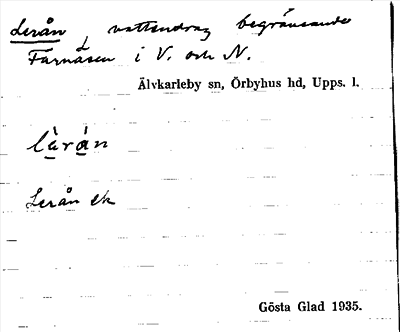 Lerån, vattendrag begränsande
Farnåsen i V. och N.
Älvkarleby sn, Örbyhus hd, Upps. l.
lɛ̀rán
Lerån ek
Gösta Glad 1935.